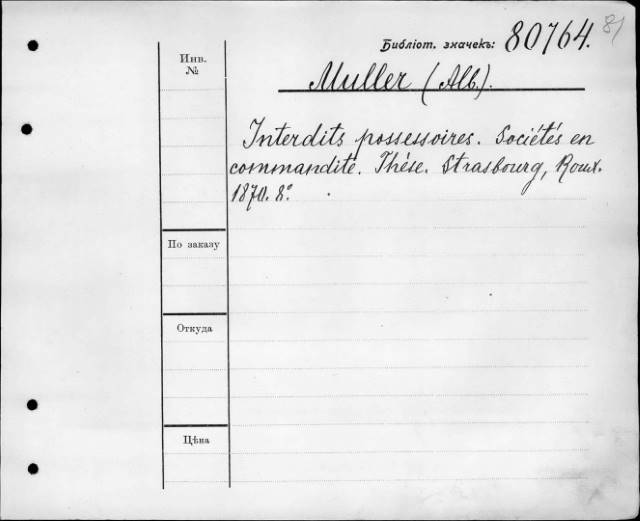 Библіот. значекъ: 80764. 81
Инв. №
Muller (Alb.).
Interdits possessoires. Sociétés en
commandite. Thése. Strasbourg, Roux.
1870. 8º.
По заказу
Откуда
Цѣна